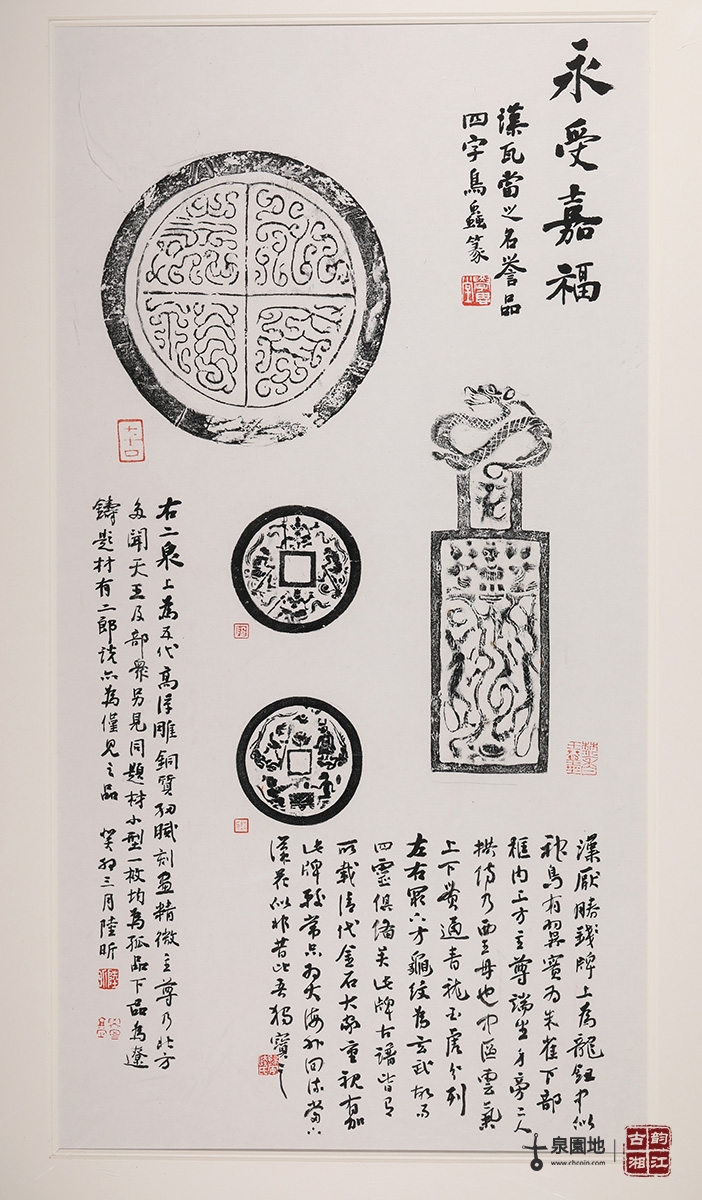 永受嘉福
漢瓦當之名譽品
四字鳥蟲篆
漢厭勝錢牌上為龍鈕中似
神鳥有翼實為朱雀下部
框内上方主尊端坐身旁二人
拱侍乃西王母也中區雲氣
上下贯通青龍白虎分列
左右最下方龜纹為玄武故而
四靈俱備矣此牌古譜皆有
所載清代金石大家重視有加
此牌
漢花似非昔比吾獨寶之
右二泉上為五代高浮雕銅質細膩刻画精微主尊乃北方
多聞天王及部眾另見同題材小型一枚均為孤品下品為遼
鑄題材有二郎说亦為僅見之品 癸卯三月陸昕
泉園地
www.chcoin.com
韵江
古湘